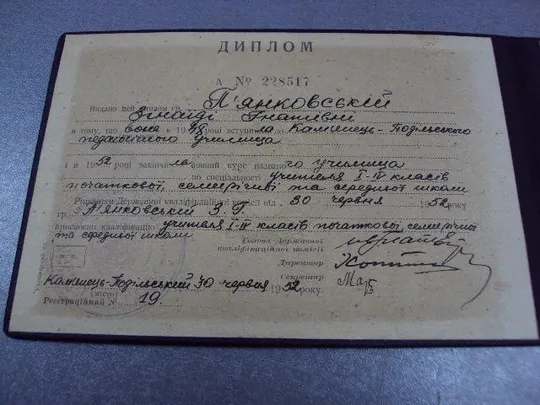 ДИПЛОМ
А № 228517
Видано цей диплом гр. П'янковській
Зінаїді Гнатівні
в тому, що вона в 1948 році вступила до Кам'янець-Подільського
педагогічного училища
і в 1952 закінчила повний курс названого училища
по спеціальності учителя I-IV класів
початкової, семирічної та середньої школи
Рішенням Державної кваліфікаційної комісії від 30 червня 1952 року
гр. П'янковській З. Г.
присвоєно кваліфікацію учителя I-IV класів початкової, семирічної
та середньої школи
Голова Державної
кваліфікаційної комісії
Директор
Секретар
Кам'янець-Подільський 30 червня 1952 року.
(місто)
Реєстраційний № 19.